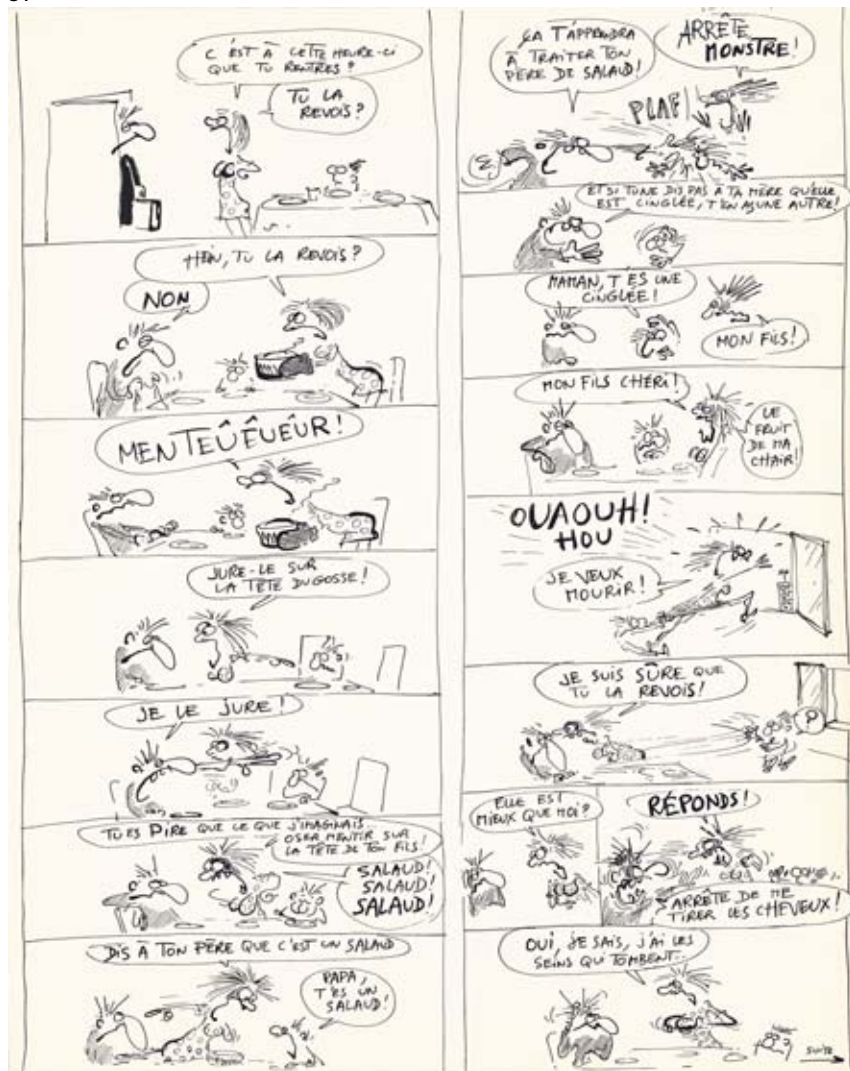 C'EST À CETTE HEURE-CI
QUE TU RENTRES?
TU LA
REVOIS?
HEIN, TU LA REVOIS?
NON
MENTEÛÊUEÛR!
JURE-LE SUR
LA TÊTE DU GOSSE!
JE LE JURE!
TU ES PIRE QUE CE QUE J'IMAGINAIS...
OSER MENTIR SUR
LA TÊTE DE TON FILS!
SALAUD!
SALAUD!
SALAUD!
DIS À TON PÈRE QUE C'EST UN SALAUD
PAPA,
T'ES UN
SALAUD!
ÇA T'APPRENDRA
À TRAITER TON
PÈRE DE SALAUD!
ARRÊTE
MONSTRE!
PLAF
ET SI TU NE DIS PAS A TA MÈRE QU'ELLE
EST CINGLÉE, T'EN AS UNE AUTRE!
MAMAN, T'ES UNE
CINGLÉE!
MON FILS!
MON FILS CHÉRI!
LE
FRUIT
DE MA
CHAIR!
OUAOUH!
HOU
JE VEUX
MOURIR!
JE SUIS SÛRE QUE
TU LA REVOIS!
?
ELLE EST
MIEUX QUE MOI?
RÉPONDS!
ARRÊTE DE ME
TIRER LES CHEVEUX!
OUI, JE SAIS, J'AI LES
SEINS QUI TOMBENT...
SUITE